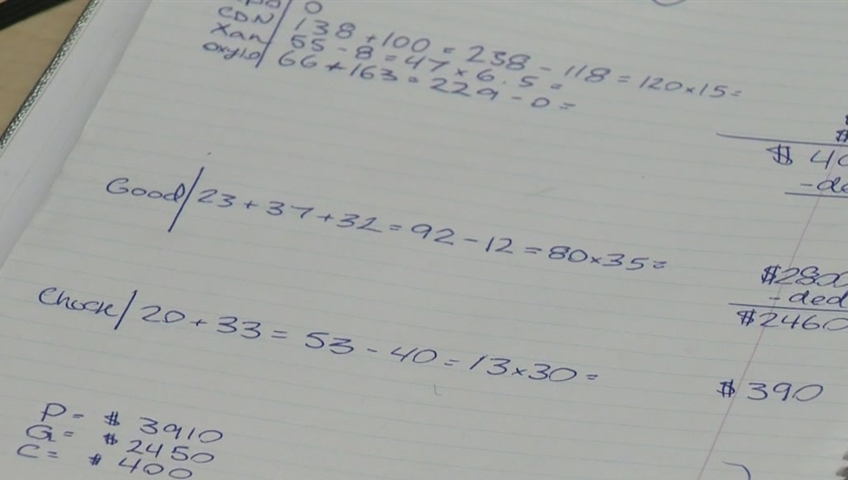 0
CDN / 138 + 100 = 238 - 118 = 120 x 15 =
Xan / 55 - 8 = 47 x 6.5 =
66 + 163 = 229 - 0 =
$ 40
Good / 23 + 37 + 32 = 92 - 12 = 80 x 35 =
$2800
- ded
$2460
/ 20 + 33 = 53 - 40 = 13 x 30 =
$ 390
P = $ 3910
G = $ 2450
C = $ 400